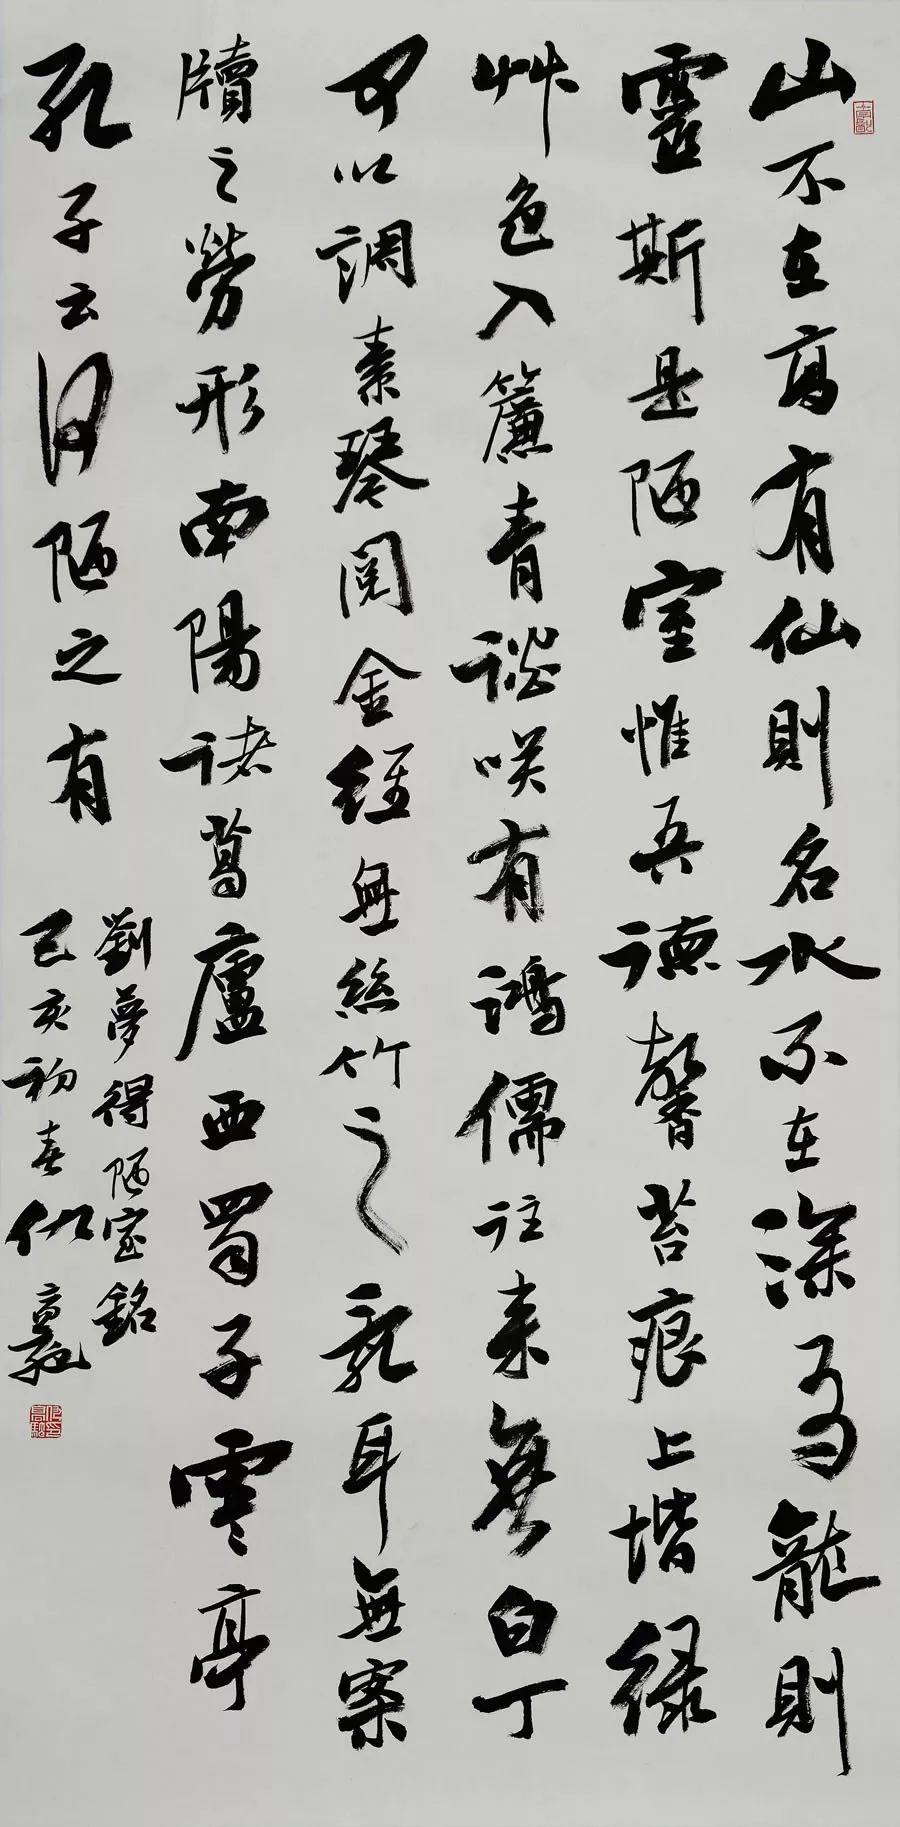 山不在高有仙則名水不在深有龍則
靈斯是陋室惟吾德馨苔痕上堦緑
艸色入簾青談咲有鴻儒往来無白丁
可以調素琴閱金經無絲竹之亂耳無案
牘之勞形南陽諸葛廬西蜀子雲亭
孔子云何陋之有
劉夢得陋室銘
己亥初春仇高馳